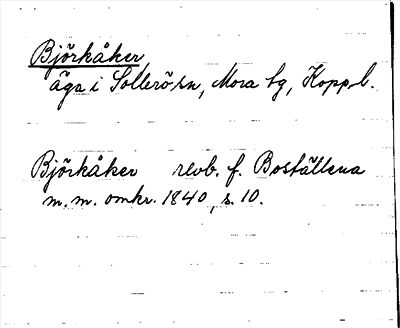 Björkåker,
äga i Sollerö sn, Mora tg, Kopp. l.
Björkåker revb. f. Boställena
m. m. omkr. 1840, s. 10.